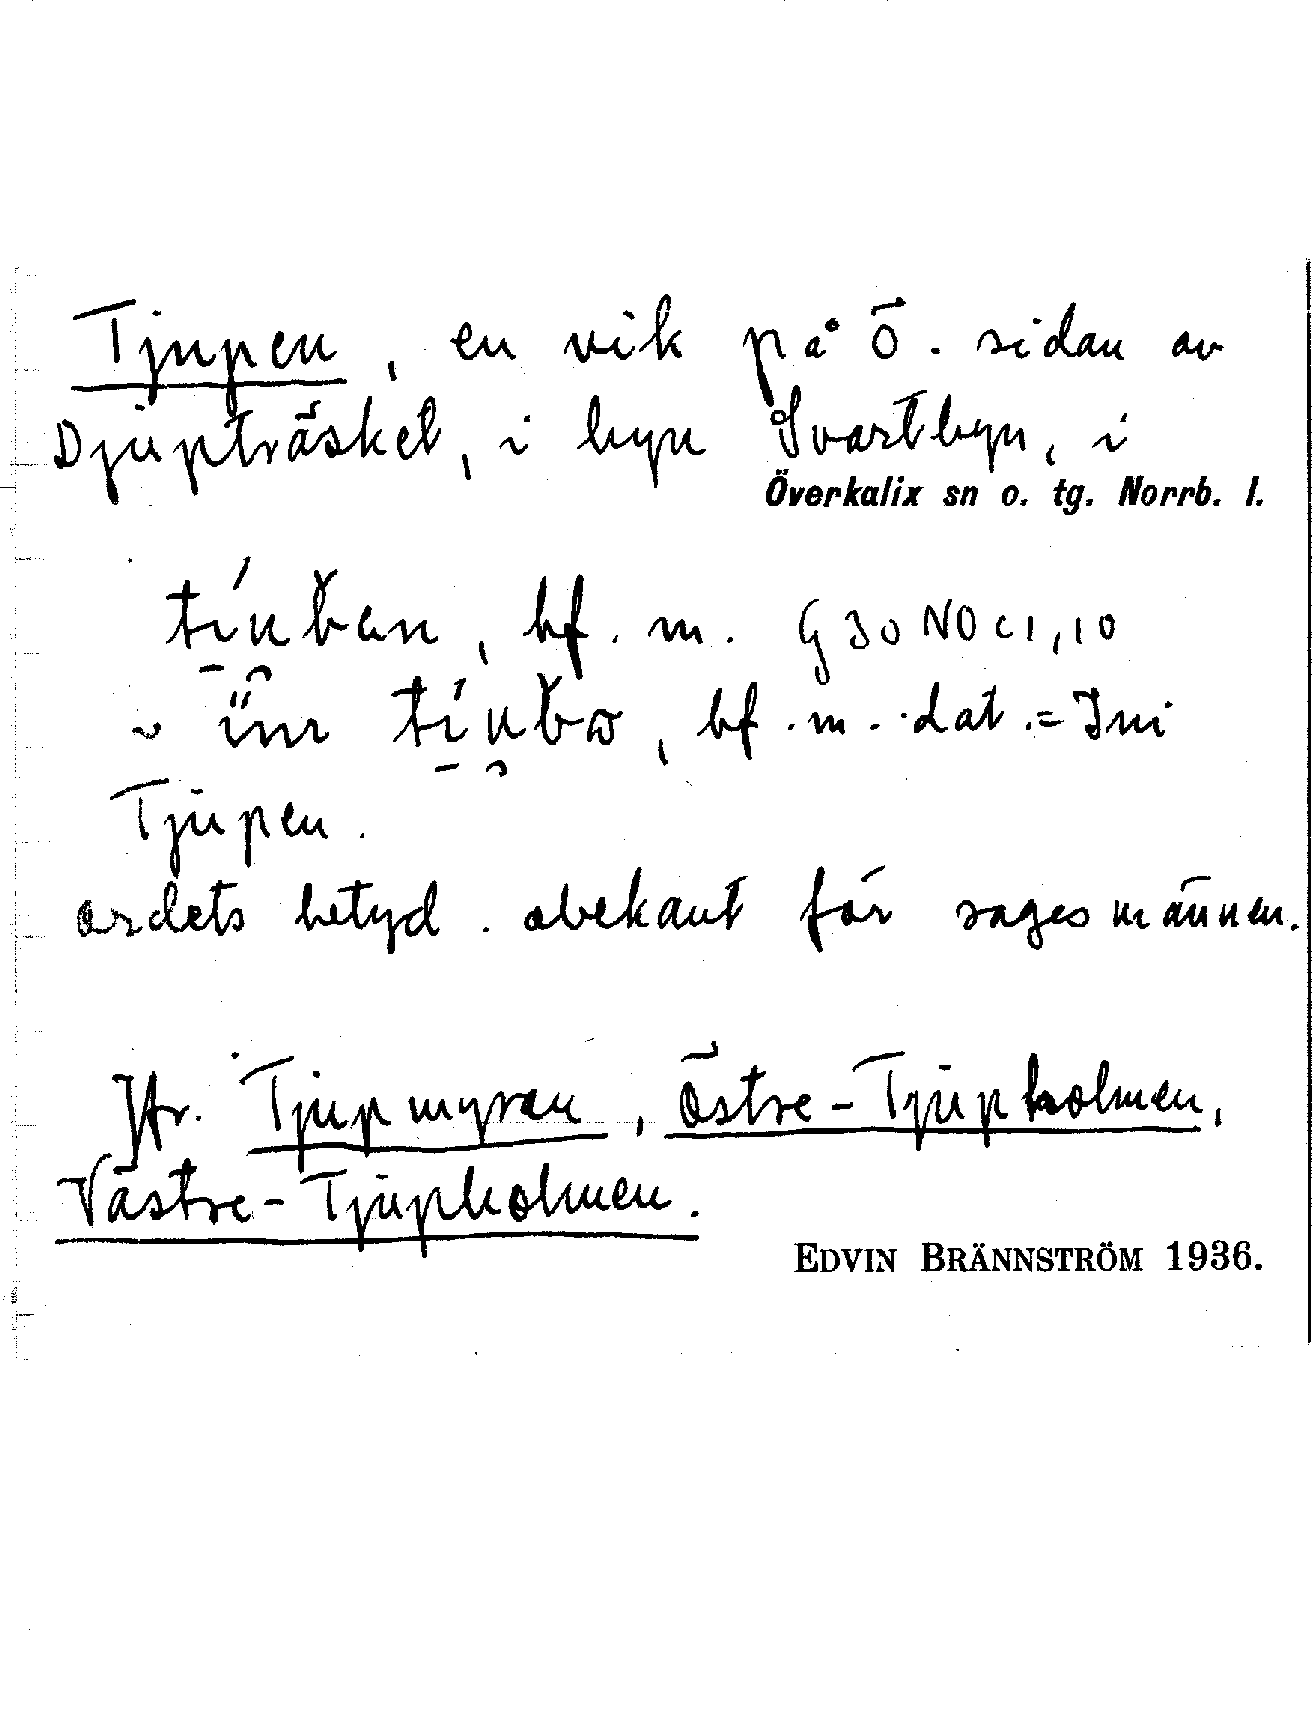 Tjupen, en vik på Ö. sidan av
Djupträsket, i byn Svartbyn, i
Överkalix sn o. tg. Norrb. l.
bf. m. G 30 NO c 1, 10
bf. m. dat. = Ini
Tjupen.
ordets betyd. obekant för sagesmännen.
Jfr. Tjupmyran, Östre-Tjupholmen,
Västre-Tjupholmen.
EDVIN BRÄNNSTRÖM 1936.